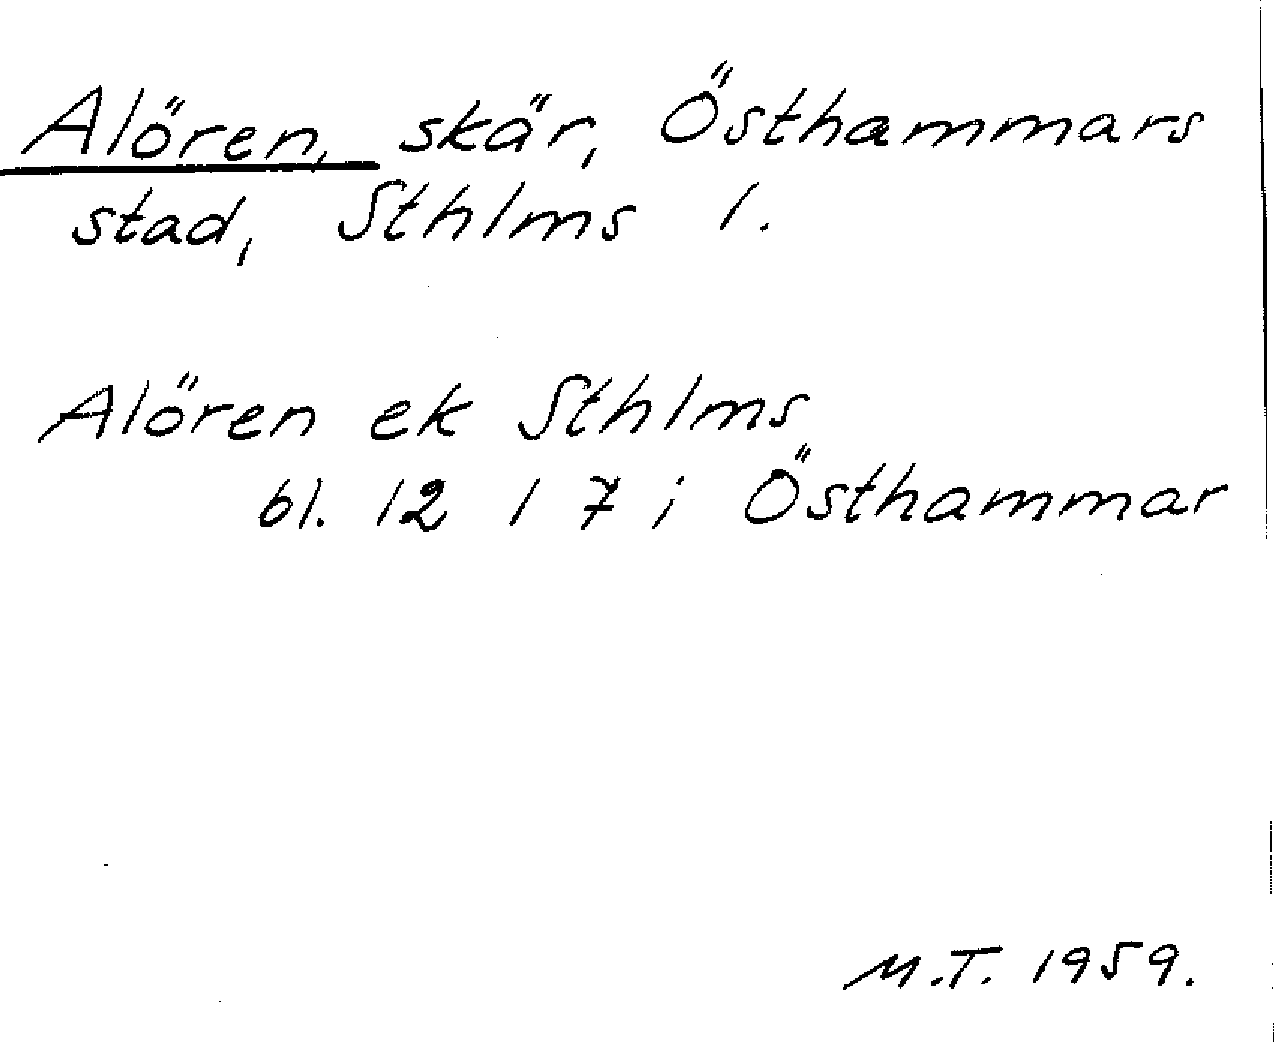 Alören, skär, Östhammars
stad, Sthlms l.
Alören ek Sthlms
bl. 12 l 7 i Östhammar
M.T. 1959.